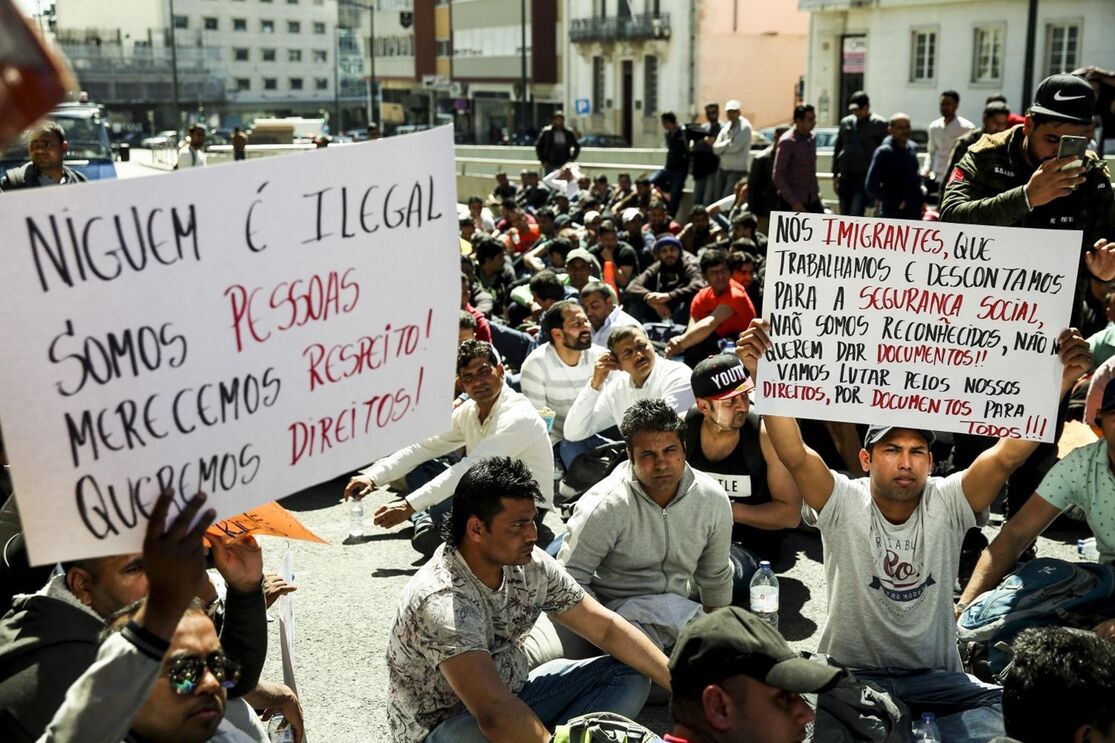 NIGUEM É ILEGAL
SOMOS PESSOAS
MERECEMOS RESPEITO!
QUEREMOS DIREITOS!
NÓS IMIGRANTES, QUE
TRABALHAMOS E DESCONTAMOS
PARA A SEGURANÇA SOCIAL,
NÃO SOMOS RECONHECIDOS, NÃO
QUEREM DAR DOCUMENTOS!!
VAMOS LUTAR PELOS NOSSOS
DIREITOS, POR DOCUMENTOS PARA
TODOS!!!
YOUTH
P